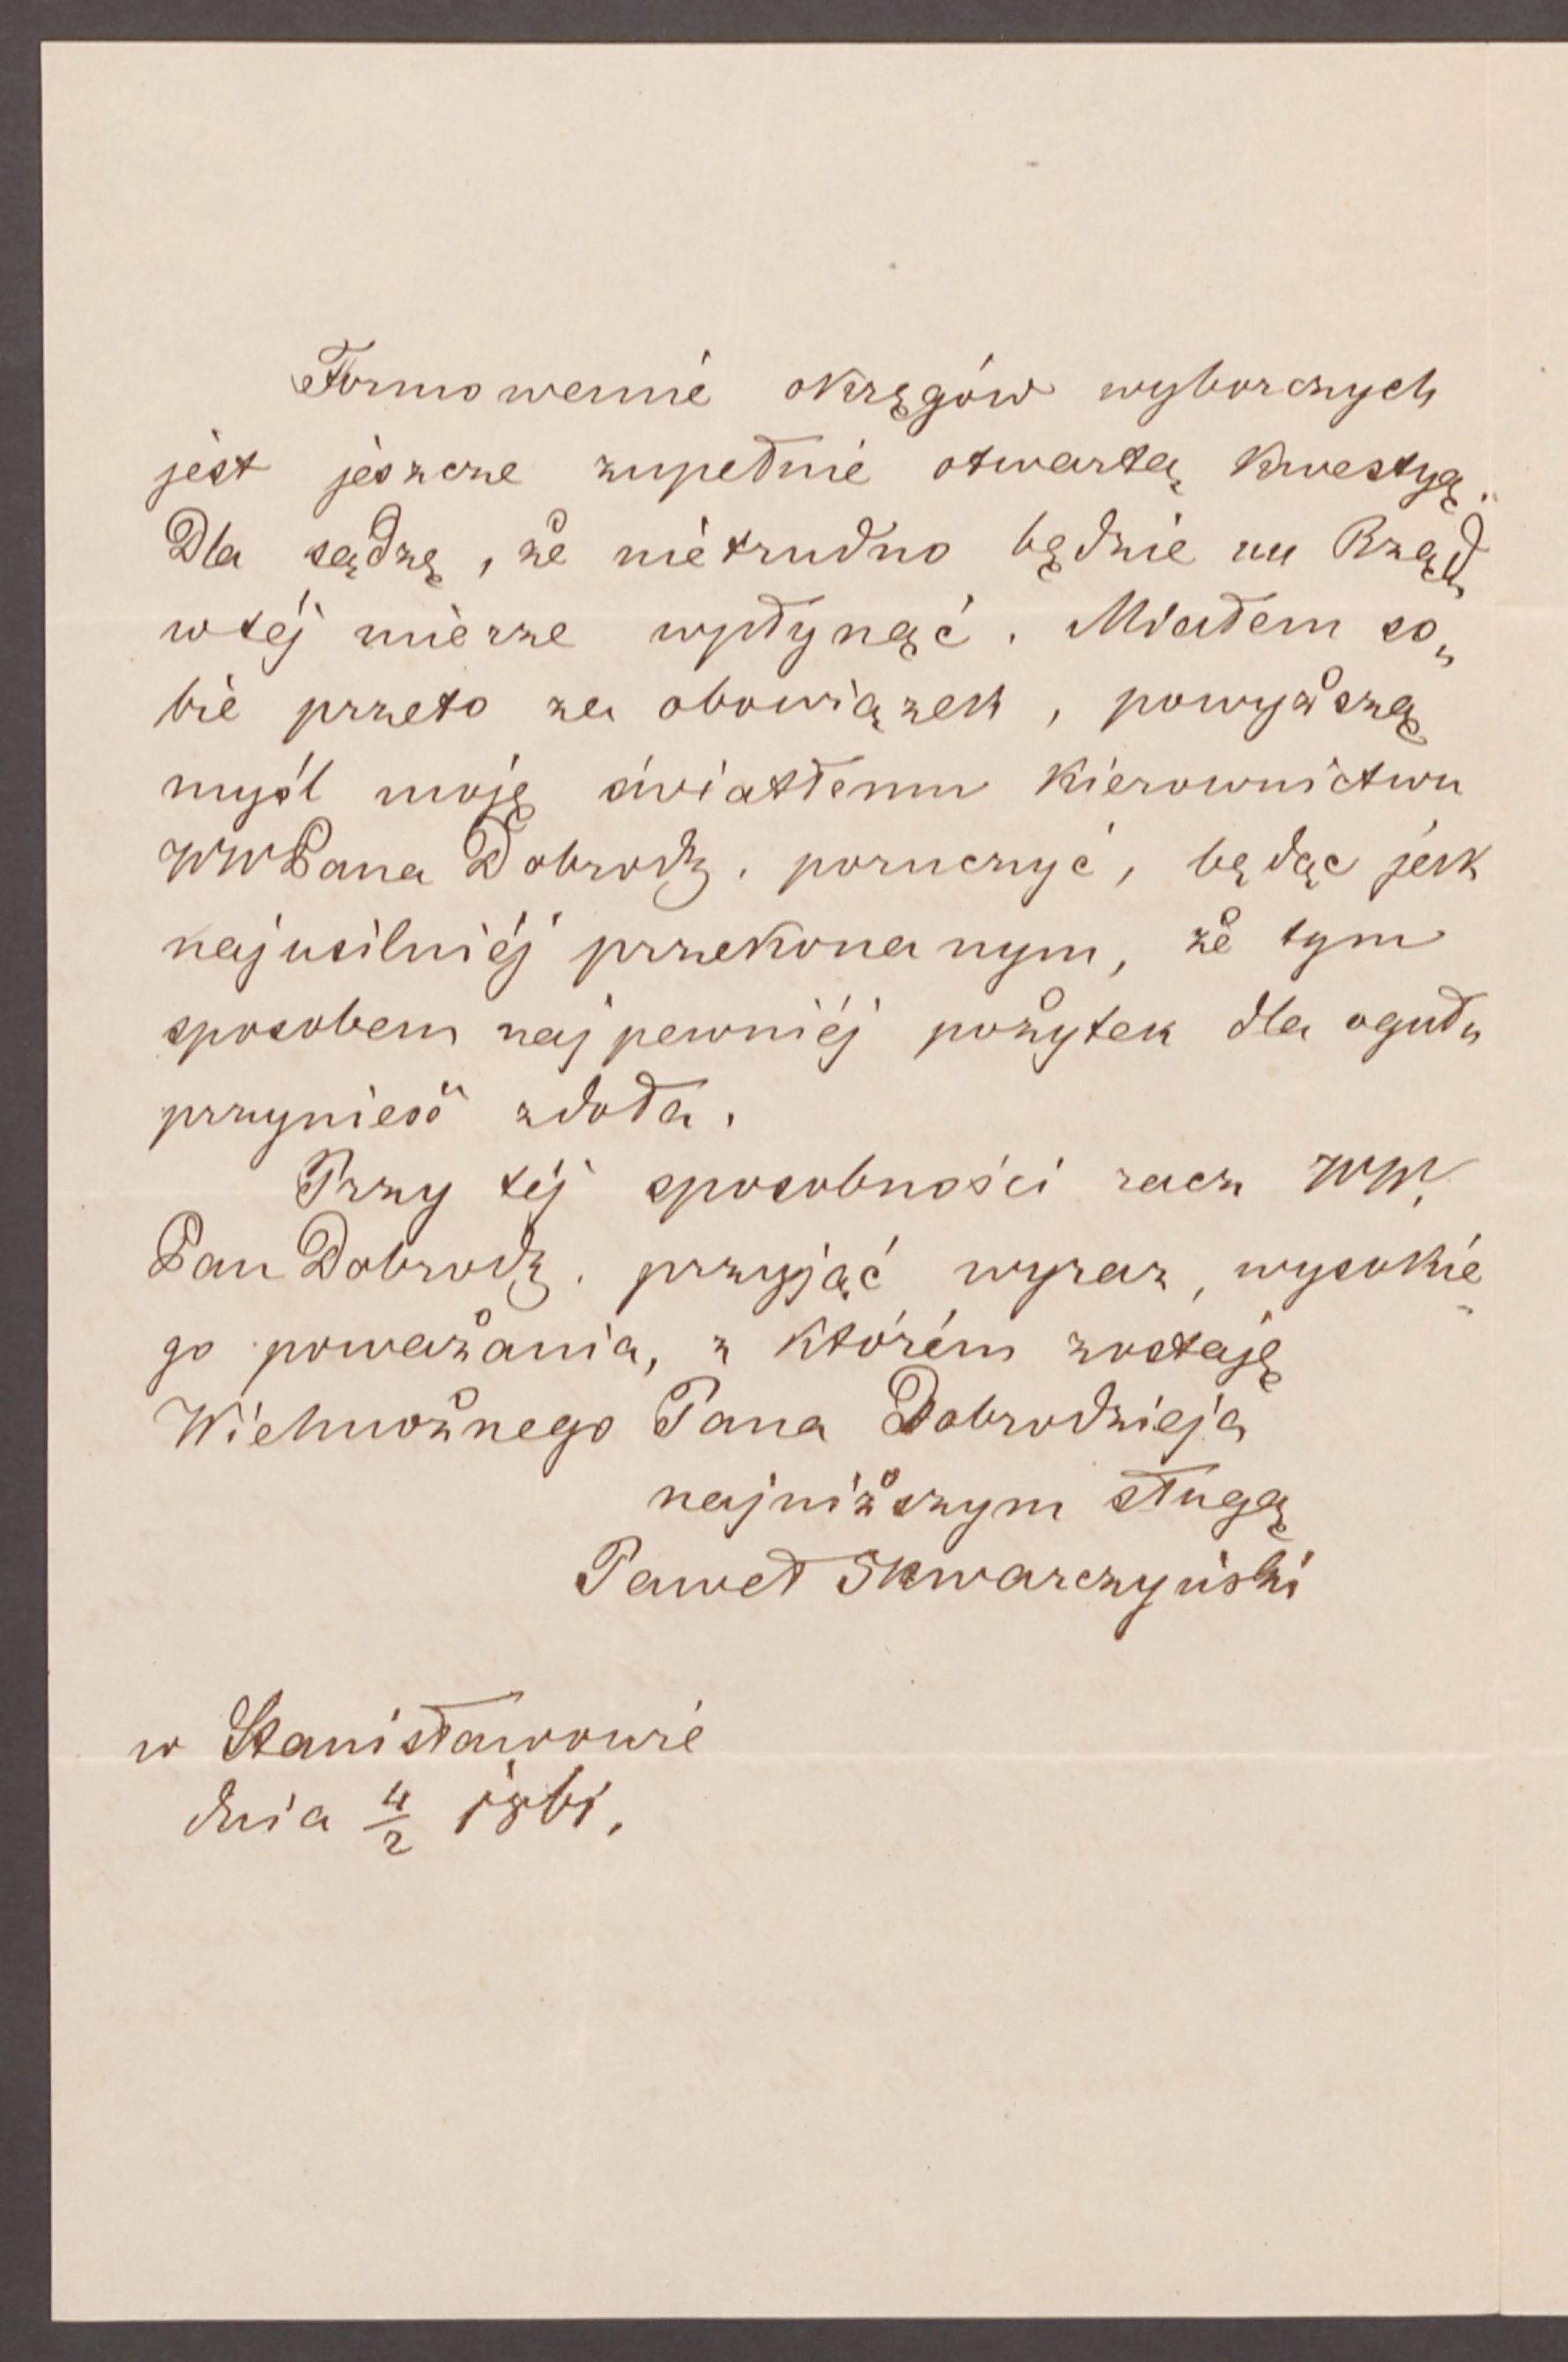 Formowanie okręgów wyborczych
jest jeszcze zupełnie otwartą kwestyą.
Dla sądzę, że nietrudno będzie na Rząd
w téj mierze wpłynąć. Miałem so„
bie przeto za obowiązek, powyższą
myśl moję światłemu kierownictwu
WWPana Dobrodz. poruczyć, będąc jak
najusilniéj przekonanym, że tym
sposobem najpewniéj pożytek dla ogułu
przynieść zdoła.
Przy téj sposobności racz WW.
Pan Dobrodz. przyjąć wyraz, wysokie„
go poważania, z którém zostaję
Wielmożnego Pana Dobrodzieja
najniższym sługą
Paweł Skwarczyński
w Stanisławowie
dnia 4/2 1861.